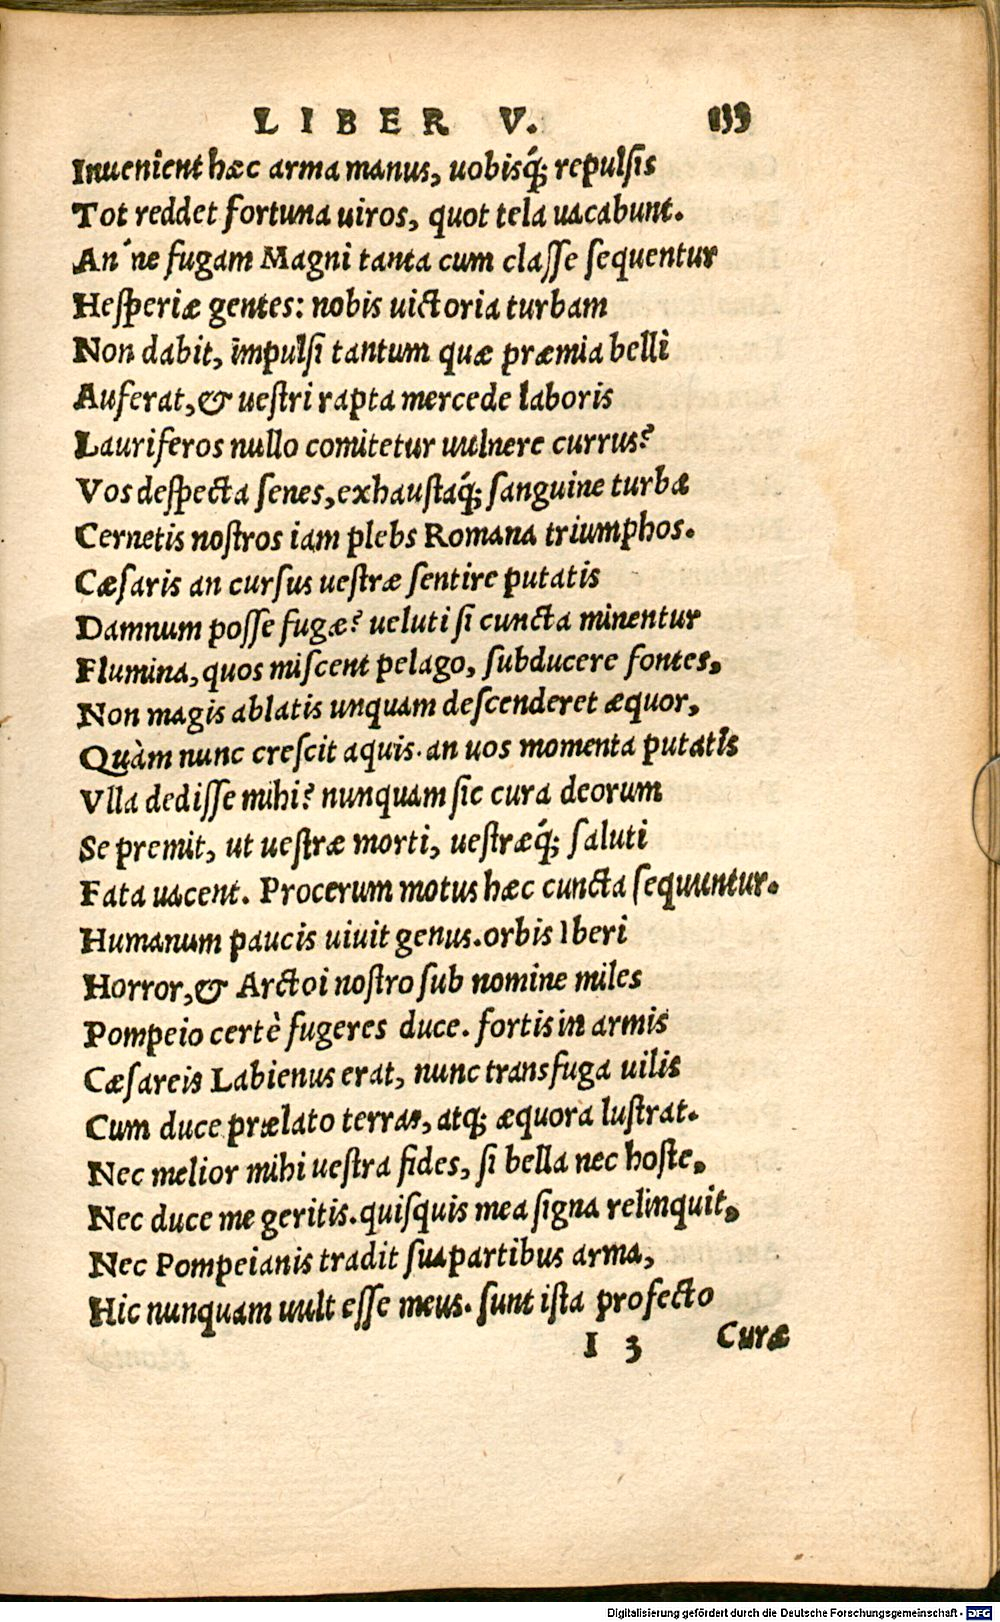 LIBER V. 133
Inuenient hæc arma manus, uobisq́; repulsis
Tot reddet fortuna uiros, quot tela uacabunt.
An'ne fugam Magni tanta cum classe sequentur
Hesperiæ gentes: nobis uictoria turbam
Non dabit, impulsi tantum quæ præmia belli
Auferat, & uestri rapta mercede laboris
Lauriferos nullo comitetur uulnere currus?
Vos despecta senes, exhaustaq́; sanguine turba
Cernetis nostros iam plebs Romana triumphos.
Cæsaris an cursus uestræ sentire putatis
Damnum posse fugæ? ueluti si cuncta minentur
Flumina, quos miscent pelago, subducere fontes,
Non magis ablatis unquam descenderet æquor,
Quàm nunc crescit aquis. an uos momenta putatis
Vlla dedisse mihi? nunquam sic cura deorum
Se premit, ut uestræ morti, uestræq́; saluti
Fata uacent. Procerum motus hæc cuncta sequuntur.
Humanum paucis uiuit genus. orbis Iberi
Horror, & Arctoi nostro sub nomine miles
Pompeio certè fugeres duce. fortis in armis
Cæsareis Labienus erat, nunc transfuga uilis
Cum duce prælato terras, atq; æquora lustrat.
Nec melior mihi uestra fides, si bella nec hoste,
Nec duce me geritis. quisquis mea signa relinquit,
Nec Pompeianis tradit sua partibus arma,
Hic nunquam uult esse meus. sunt ista profecto
I 3 Curæ
Digitalisierung gefördert durch die Deutsche Forschungsgemeinschaft - DFG